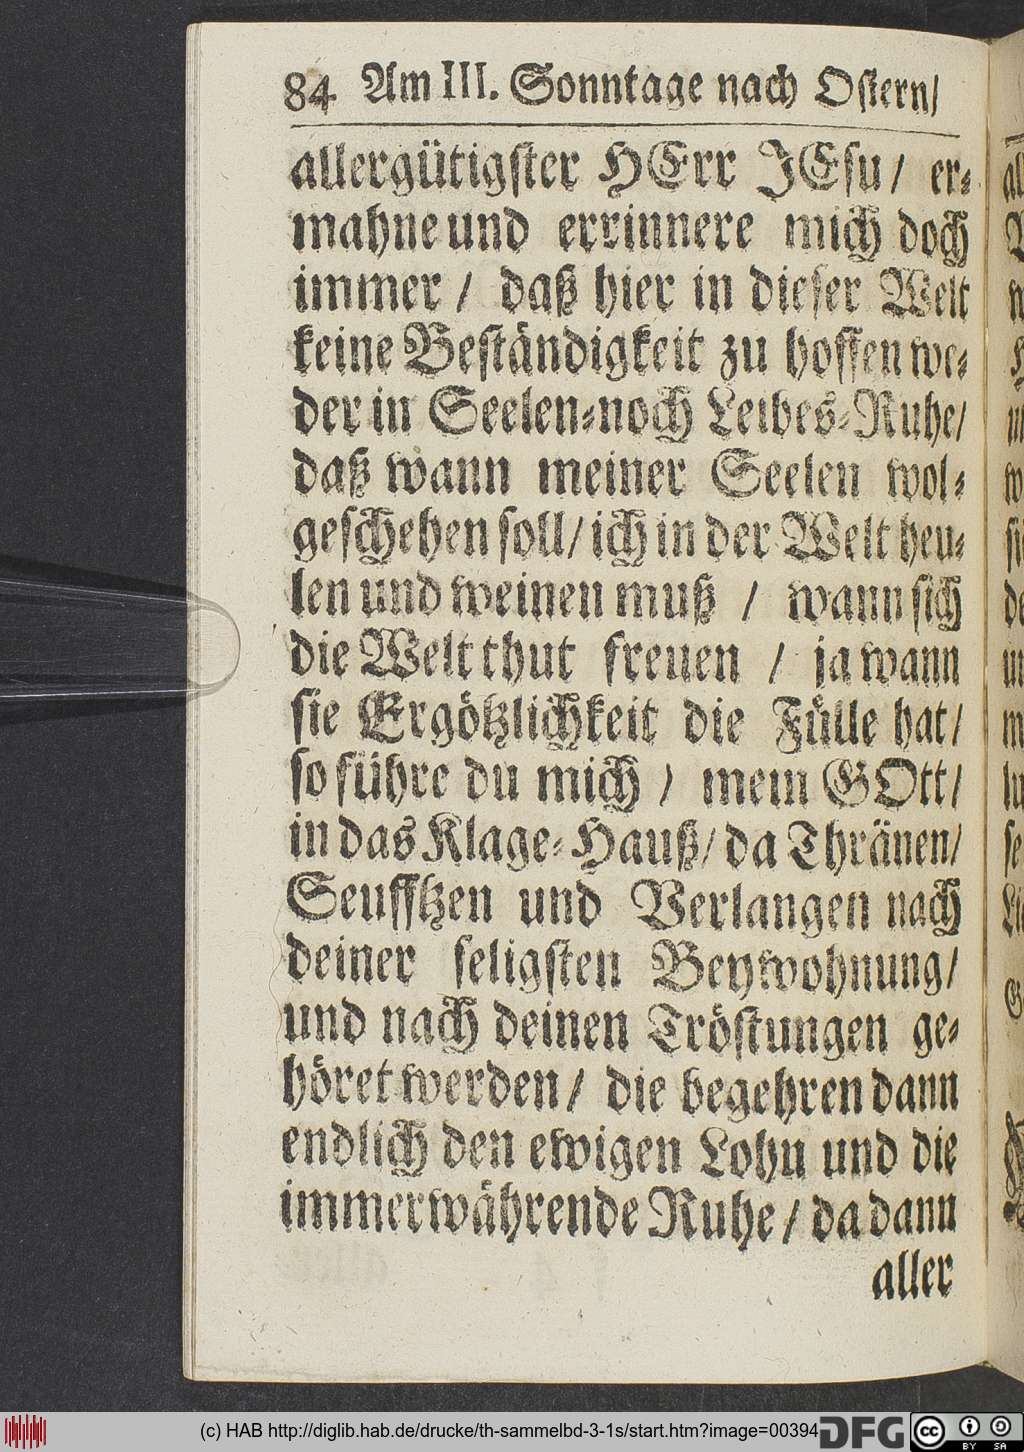 84 Am III. Sonntage nach Ostern/
allergütigster HErr JEsu/ er-
mahne und errinnere mich doch
immer / daß hier in dieser Welt
keine Beständigkeit zu hoffen we-
der in Seelen-noch Leibes-Ruhe/
daß wann meiner Seelen wol-
geschehen soll/ ich in der Welt heu-
len und weinen muß / wann sich
die Welt thut freuen / ja wann
sie Ergötzlichkeit die Fülle hat/
so führe du mich / mein GOtt/
in das Klage-Hauß/ da Thränen/
Seufftzen und Verlangen nach
deiner seligsten Beywohnung/
und nach deinen Tröstungen ge-
höret werden/ die begehren dann
endlich den ewigen Lohn und die
immerwährende Ruhe/ da dann
aller
(c) HAB http://diglib.hab.de/drucke/th-sammelbd-3-1s/start.htm?image=00394
DFG
cc BY SA